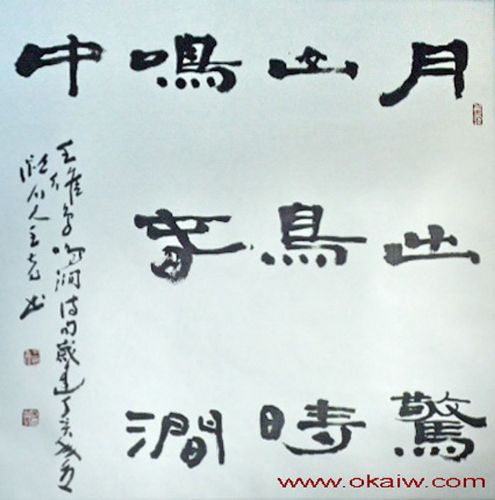 月出驚
山鳥時
鳴春澗
中
王維鳥鳴澗詩句歲 丁亥
人王 书
www.okaiw.com